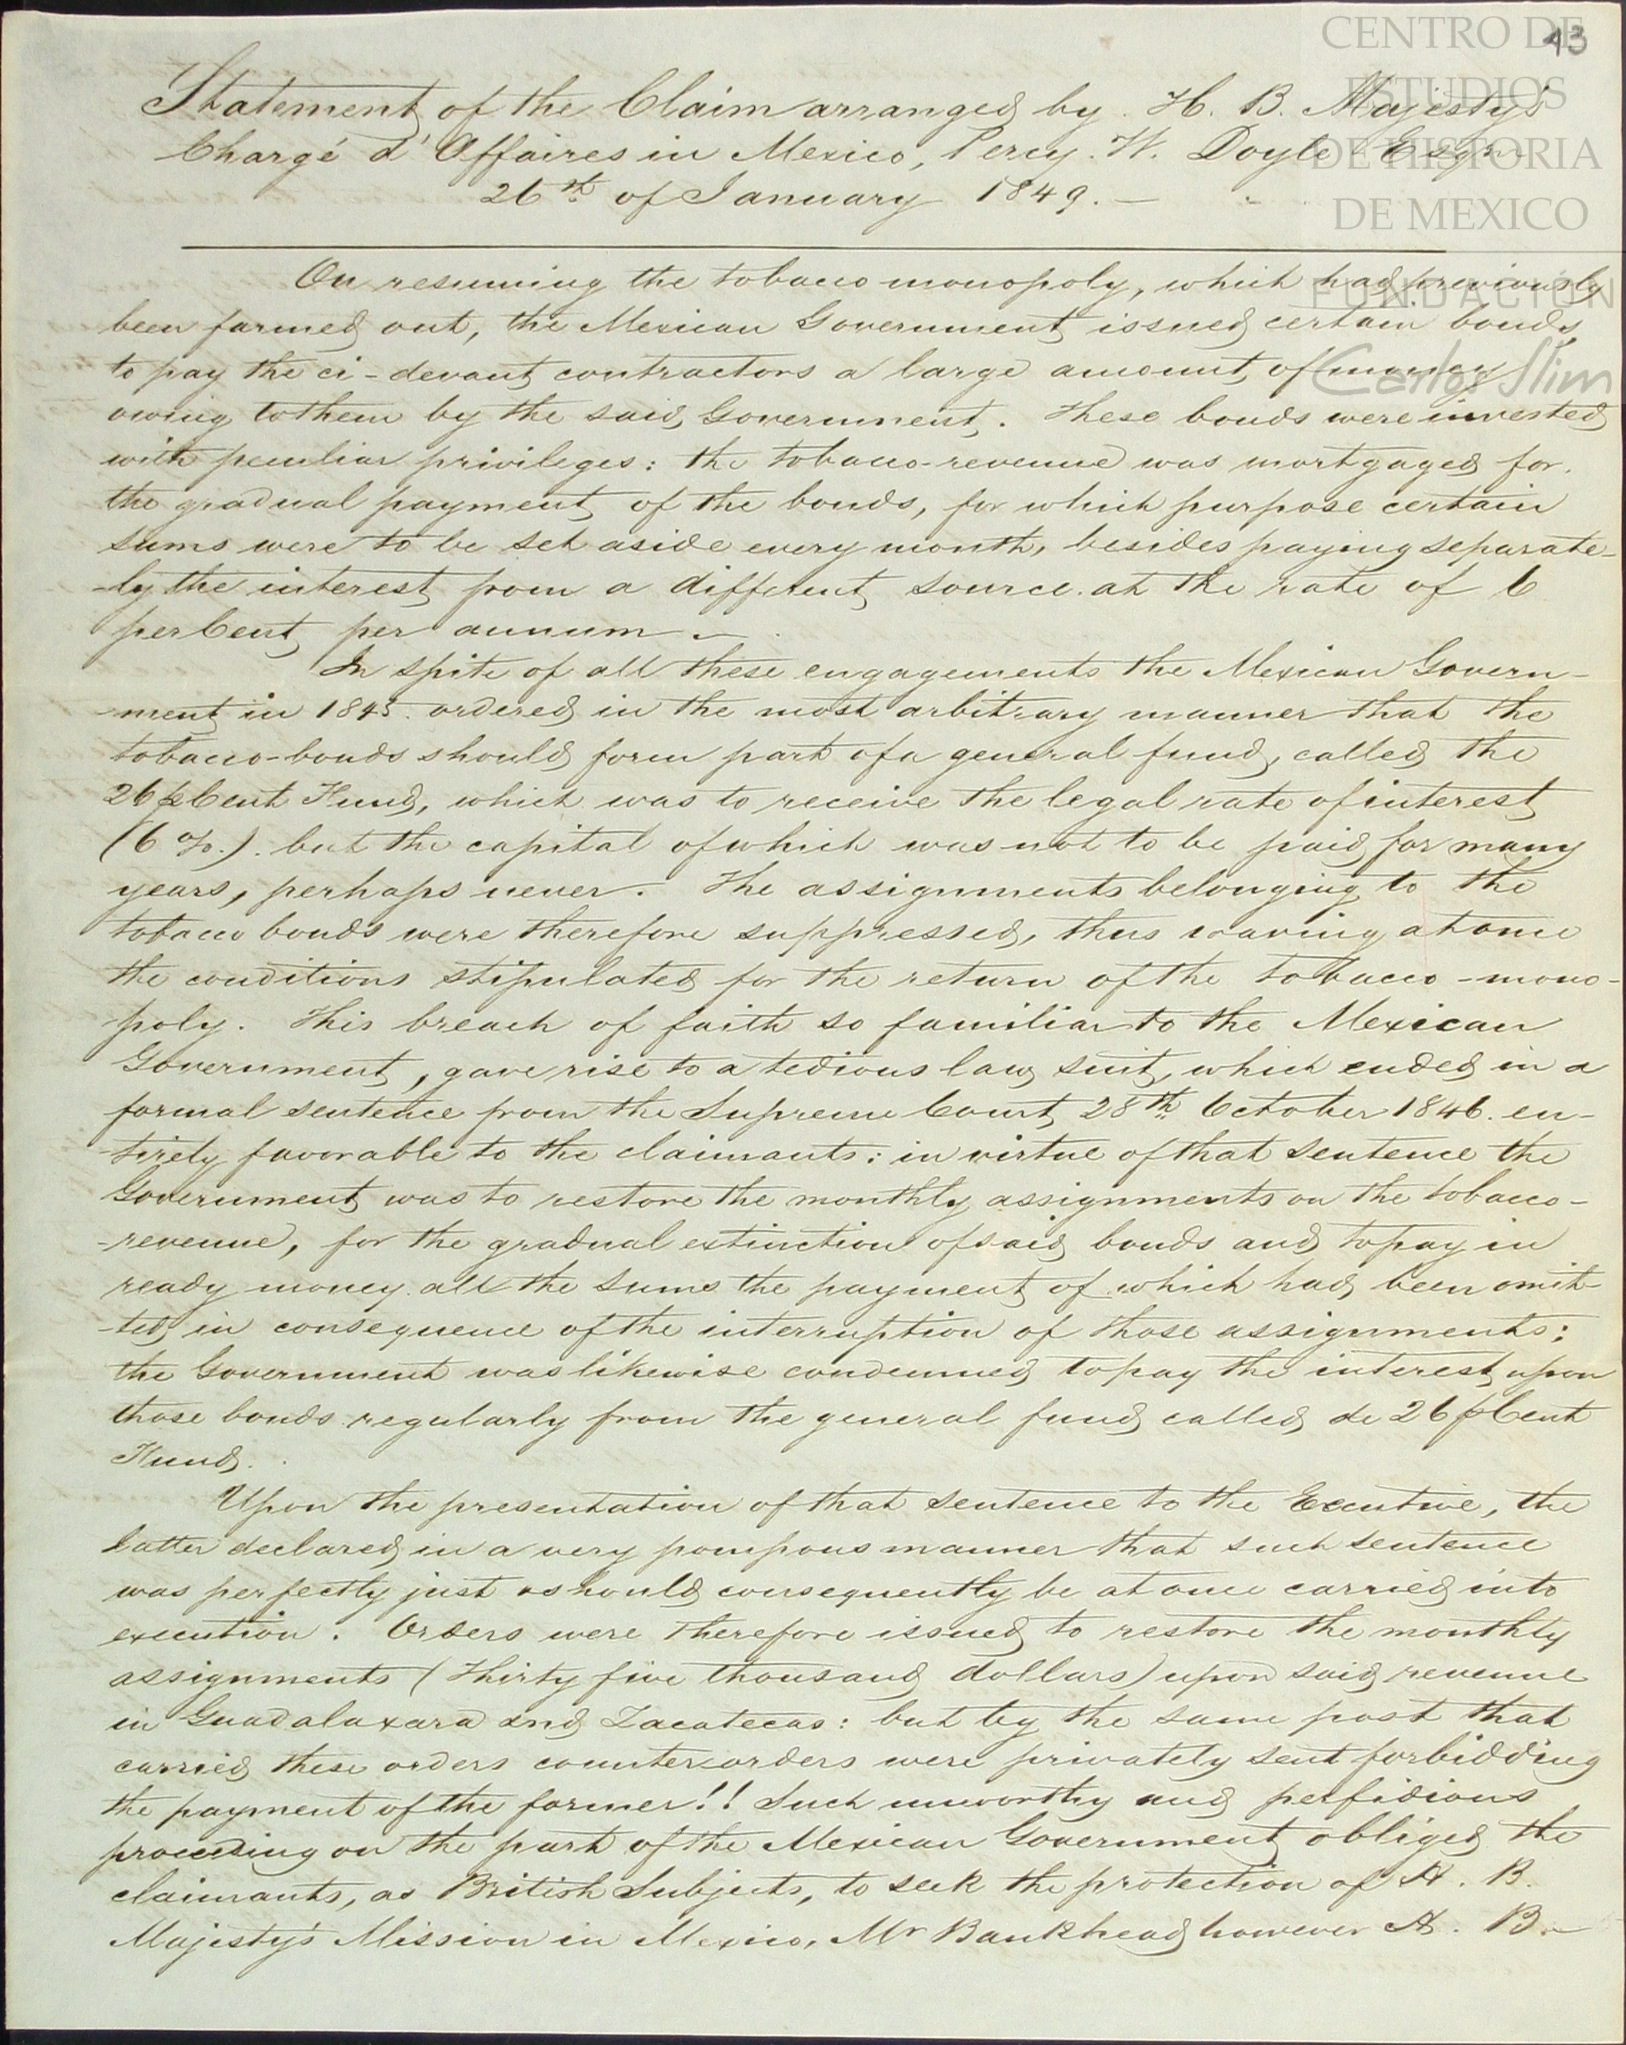 13
CENTRO DE
ESTUDIOS
DE HISTORIA
DE MEXICO
FUNDACIÓN
Carlos Slim
Statement of the Claim arranged by H. B. Majesty's
Chargé d'Affaires in Mexico, Percy. W. Doyle Esqr.
26th of January 1849. —
On resuming the tobacco monopoly, which had previously
been farmed out, the Mexican Government issued certain bonds
to pay the ci-devant contractors a large amount of money
owing to them by the said Government. These bonds were invested
with peculiar privileges: the tobacco-revenue was mortgaged for
the gradual payment of the bonds, for which purpose certain
sums were to be set aside every month, besides paying separate-
-ly the interest from a different source at the rate of 6
per Cent per annum —.
In spite of all these engagements the Mexican Govern-
-ment in 1843 ordered in the most arbitrary manner that the
tobacco-bonds should form part of a general fund, called the
26 p Cent Fund, which was to receive the legal rate of interest
(6 %.). but the capital of which was not to be paid for many
years, perhaps never. The assignments belonging to the
tobacco bonds were therefore suppressed, thus waving at once
the conditions stipulated for the return of the tobacco-mono-
-poly. This breach of faith so familiar to the Mexican
Government, gave rise to a tedious law suit, which ended in a
formal sentence from the Supreme Court 28th October 1846. en-
-tirely favorable to the claimants: in virtue of that sentence the
Government was to restore the monthly assignments on the tobacco-
-revenue, for the gradual extinction of said bonds and to pay in
ready money all the sums the payment of which had been omit-
-ted in consequence of the interruption of those assignments;
the Government was likewise condemned to pay the interest upon
those bonds regularly from the general fund called de 26 p Cent
Fund.
Upon the presentation of that sentence to the Executive, the
latter declared in a very pompous manner that such sentence
was perfectly just & should consequently be at once carried into
execution. Orders were therefore issued to restore the monthly
assignments (thirty five thousand dollars) upon said revenue
in Guadalaxara and Zacatecas: but by the same post that
carried these orders counter-orders were privately sent forbidding
the payment of the former!! Such unworthy and perfidious
proceeding on the part of the Mexican Government obliged the
claimants, as British Subjects, to seek the protection of H. B.
Majesty's Mission in Mexico, Mr Bankhead however H. B. —